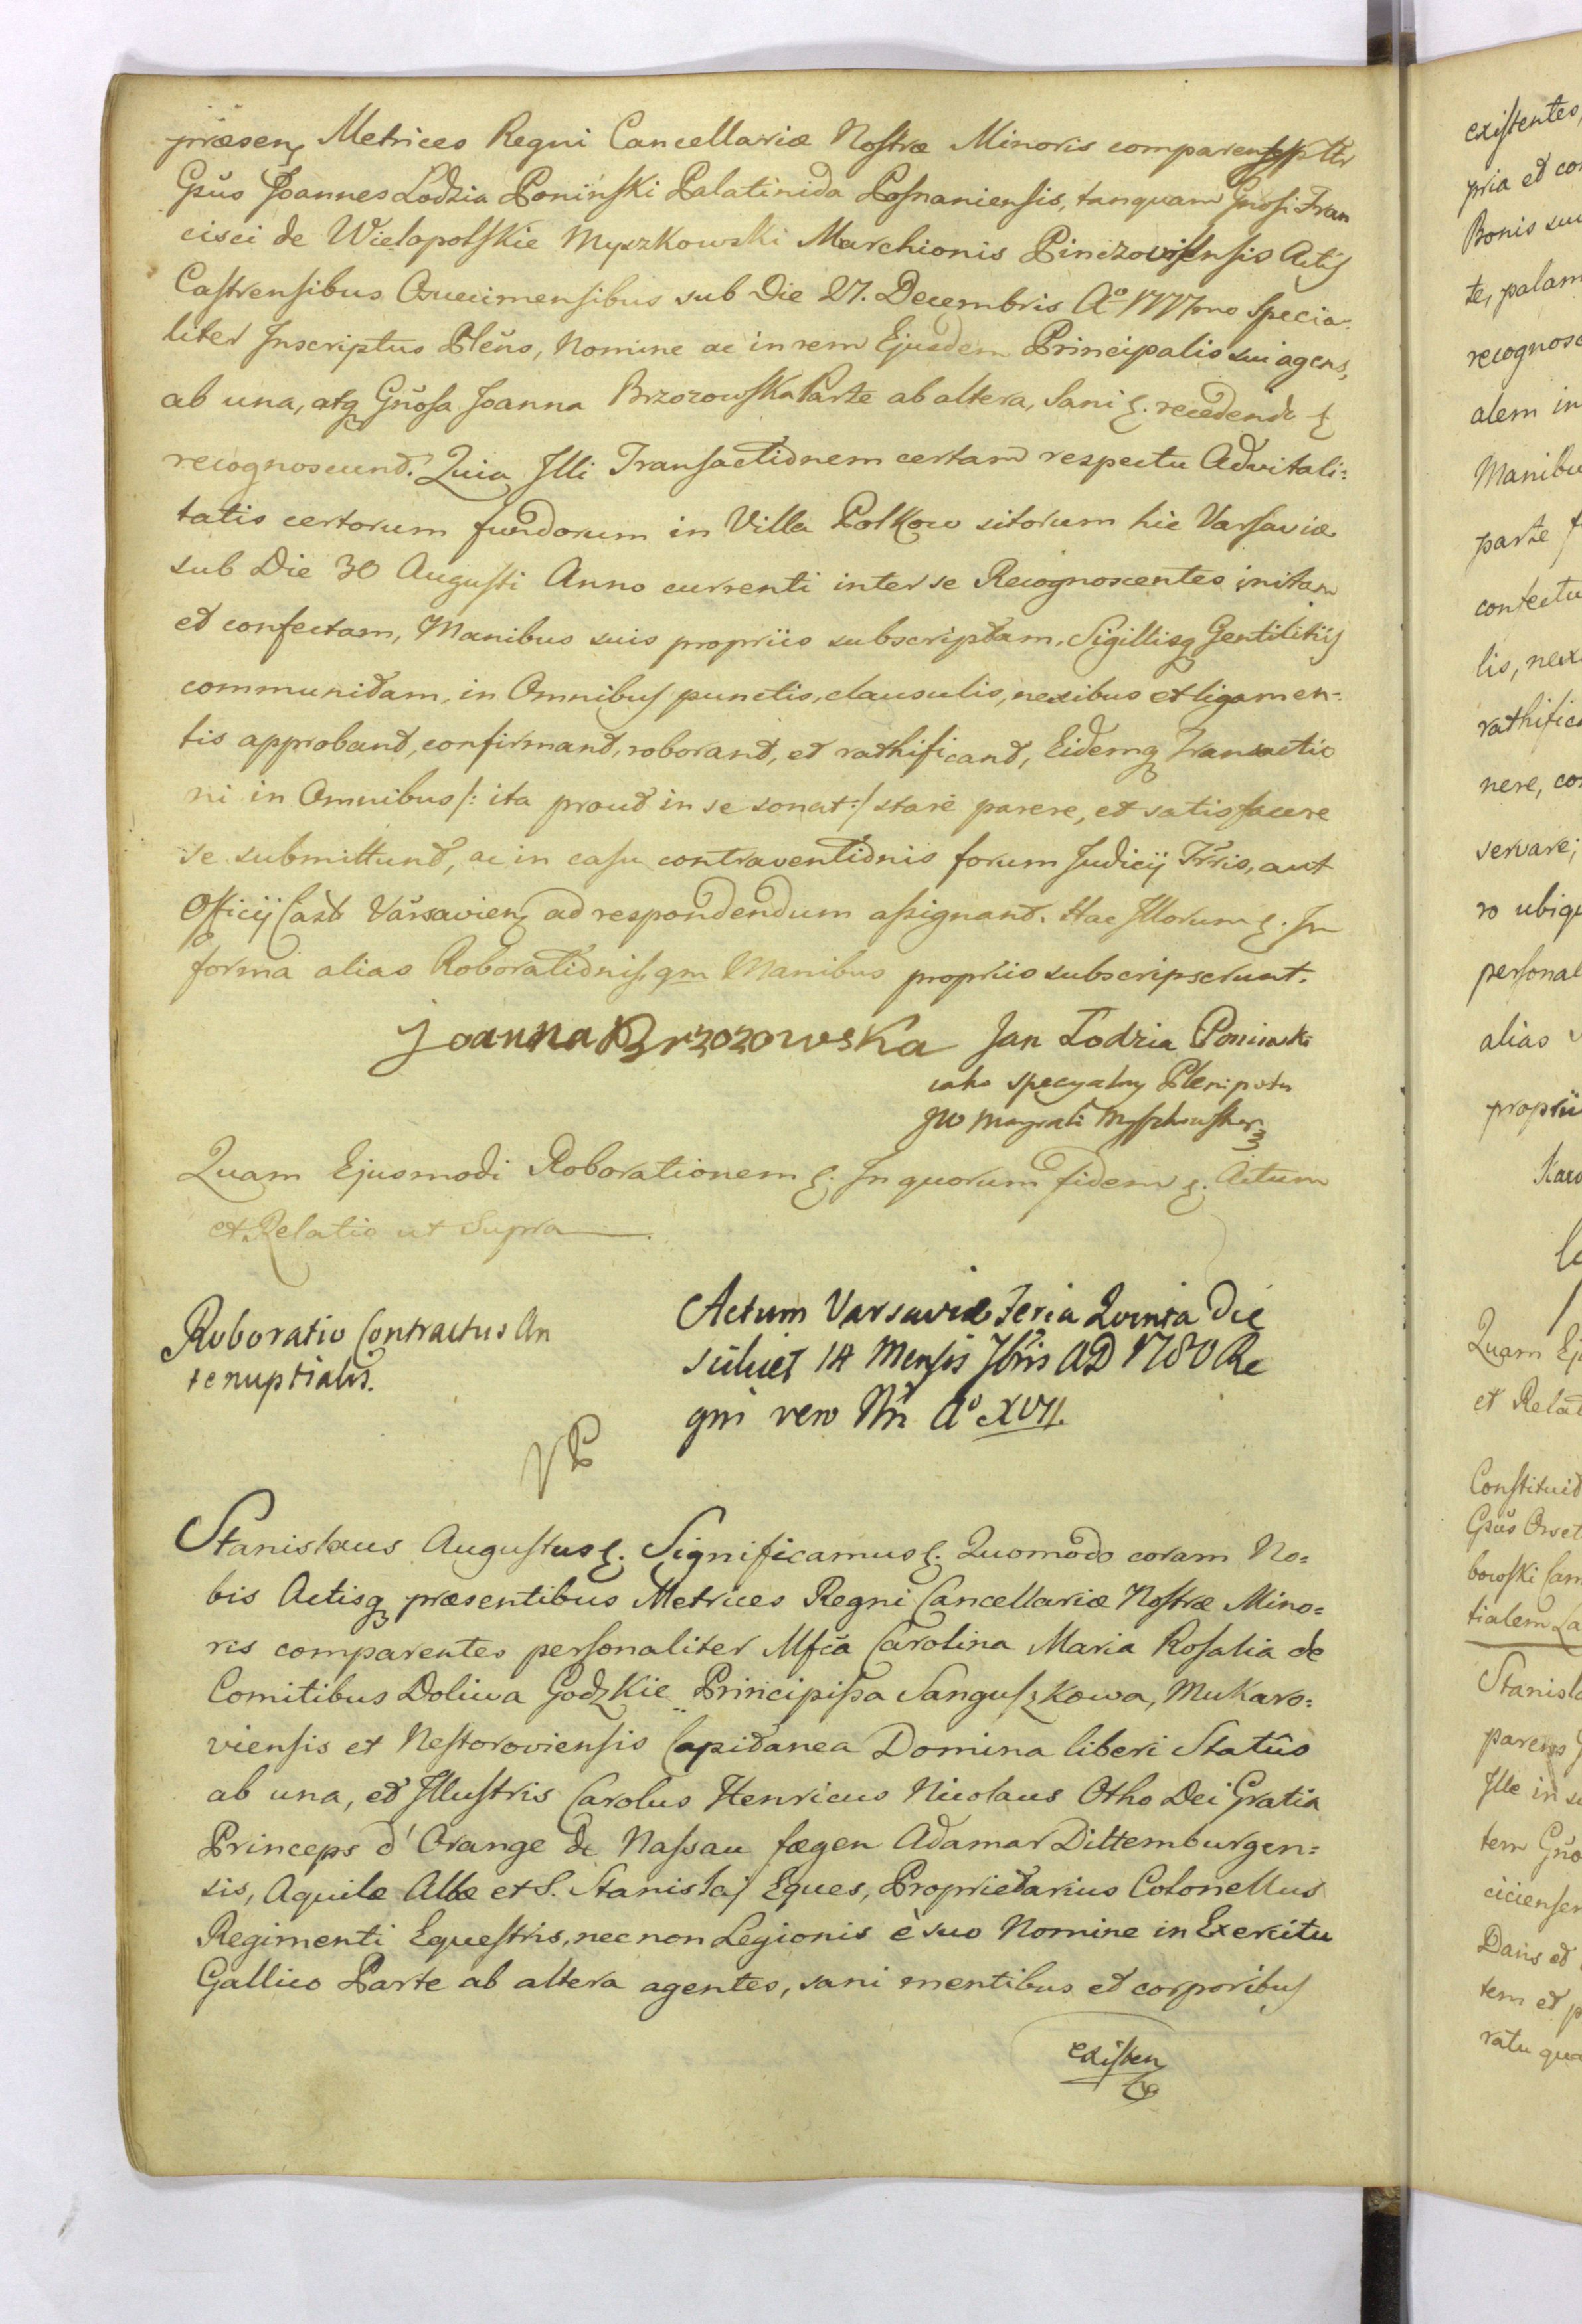 præsen Metrices Regni Cancellariæ Nostræ Minoris comparen
Gnus Joannes Lodzia Poninski Palatinida Posnaniensis, tanquam Gnosi Fran
cisci de Wielopolskie Myszkowski Marchionis Pinczoviensis Actis
Castrensibus Osviecimensibus sub Die 27. Decembris Ao 1777mo Specia
liter Inscriptus Plenus, Nomine ac in rem Ejusdem Principalis sui agens,
ab una, atq Gnosa Joanna Brzozowska Parte ab altera, Sani &. recedendo &
recognoscund. Quia Illi Transactionem certam respectu Advitali=
tatis certorum fundorum in Villa Polkow sitorum hic Varsaviæ
sub Die 30 Augusti Anno currenti inter se Recognoscentes initam
et confectam, Manibus suis propriis subscriptam, Sigillisq Gentilitijs
communitam, in Omnibus punctis, clausulis, nexibus et ligamen=
tis approband, confirmand, roborand, et rathificand, Eidemq Transactio
ni in Omnibus /: ita prout in se sonat :/ stare parere, et satisfacere
se submittund, ac in casu contraventionis forum Judicij Trris, aut
Officij Cast Varsavien ad respondendum assignand. Hac Illorum &. In
forma alias Roborationis, qm Manibus propriis subscripserunt.
Joanna Brzozowska Jan Lodzia Poninski
iako specyalny Plenipoten
JW Margrabi
Quam Ejusmodi Roborationem &. In quorum fidem &. Actum
et Relatio ut Supra
Roboratio Contractus An
tenuptialis.
Actum Varsaviæ Feria Quinta Die
scilicet 14 Mensis 7bris AD 1780 Re
gni vero Nri Ao XVII.
Stanislaus Augustus &. Significamus &. Quomodo coram No=
bis Actisq præsentibus Metrices Regni Cancellariæ Nostræ Mino=
ris comparentes personaliter Mfca Carolina Maria Rosalia de
Comitibus Doliwa Godzkie Principissa Sanguszkowa, Mukaro=
viensis et Nestoroviensis Capitanea Domina liberi Statûs
ab una, et Illustris Carolus Henricus Nicolaus Otho Dei Gratia
Princeps d'Orange de Nassau fægen Adamar Dittemburgen=
sis, Aquilæ Albæ et S. Stanislaj Eques, Proprietarius Colonellus
Regimenti Equestris, nec non Legionis è suo Nomine in Exercitu
Gallico Parte ab altera agentes, sani mentibus et corporibus
existen
existentes,
pria et co
Bonis su
te, palam
recognosc
alem in
Manibu
parte
contectu
lis, nex
rathifica
nere, co
servare;
ro ubiq
personal
alias
proprii
Karo
Quam Ej
et Relat
Constituit
Gnus Orset
bowski Cam
tialem La
Stanisla
parens
Ille in s
tem Gno
ciciensem
Dans et
tem et p
ratu qua